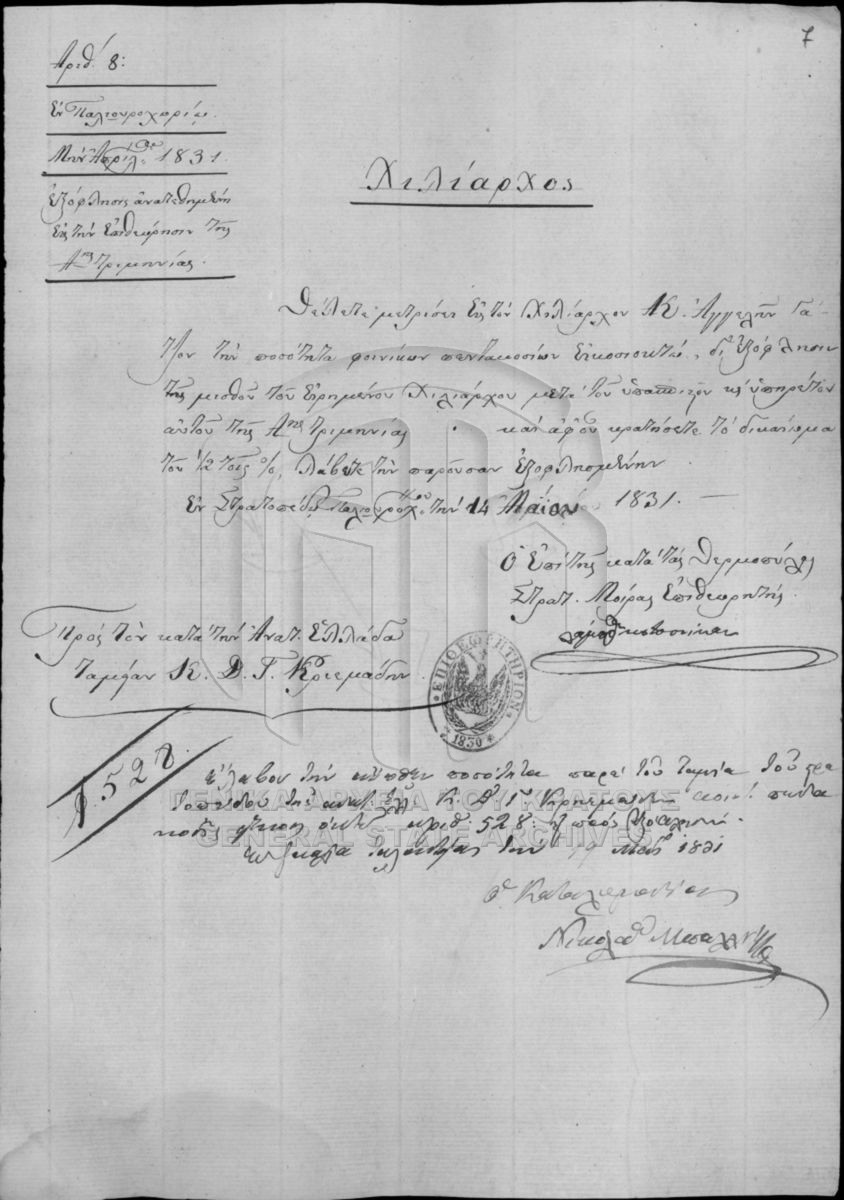 7
Ἀριθ. 8:
Ἐν Παλιουροχωρίῳ.
Μὴν Ἀπρίλ. 1831.
Ἐξόφλησις ἀνατεθημένη
εἰς τὴν ἐπιθεώρησιν τῆς
Αης τριμηνίας.
Χιλίαρχος
Θέλετε μετρίσει εἰς τὸν Χιλίαρχον Κ. Ἀγγελὴν Γά-
τζον τὴν ποσότητα φοινίκων πεντακοσίων εἰκοσιοκτώ, δι' ἐξόφλησιν
τῆς μισθοῦ τοῦ εἰρημένου Χιλιάρχου μετὰ τοῦ ὑπασπιστοῦ κ' ὑπηρέτου
αὐτοῦ τῆς Αης τριμηνίας καὶ ἀφοῦ κρατήσετε τὸ δικαίωμα
τοῦ 1/2 τοῖς %, λάβετε τὴν παροῦσαν ἐξοφλησμένην
Ἐν Στρατοπέδῳ Παλιουροχ. τὴν 14 Μαΐου 1831. —
Ὁ Ἐπὶ τῆς κατὰ τὰς Θερμοπύλας
Στρατ. Μοίρας Ἐπιθεωρητής.
Πρὸς τὸν κατὰ τὴν Ἀνατ. Ἑλλάδα
ταμίαν Κ. Δ. Γ. Κριεμάδην
ΕΠΙΘΕΩΡΗΤΗΡΙΟΝ
1830
528
ἔλαβον τὴν ἄνωθεν ποσότητα παρὰ τοῦ ταμία τοῦ στρα
τοπέδου τῆς ἀνατ. Ἑλλ. Κ. Δ. Γ. πεντα
ὀκτὼ ἀριθ. 528:
τὴν Μαΐου 1831
Νικόλαος
ΓΕΝΙΚΑ ΑΡΧΕΙΑ ΤΟΥ ΚΡΑΤΟΥΣ
GENERAL STATE ARCHIVES